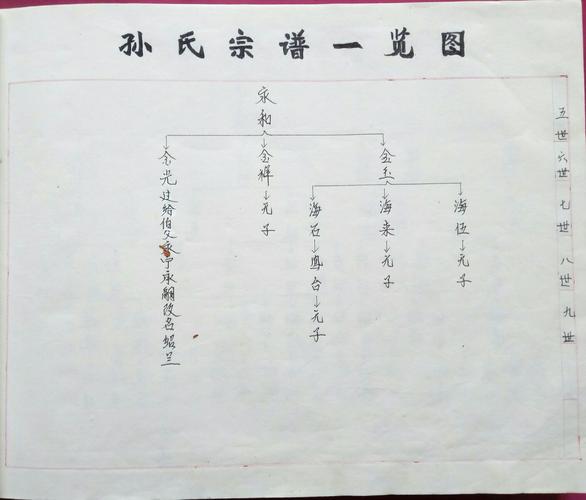 孙氏宗谱一览图
五世
六世
七世
八世
九世
永和
金玉
金祥→无子
金光过给伯父永宁承嗣改名绍兰
海伍→无子
海来→无子
海石→凤台→无子